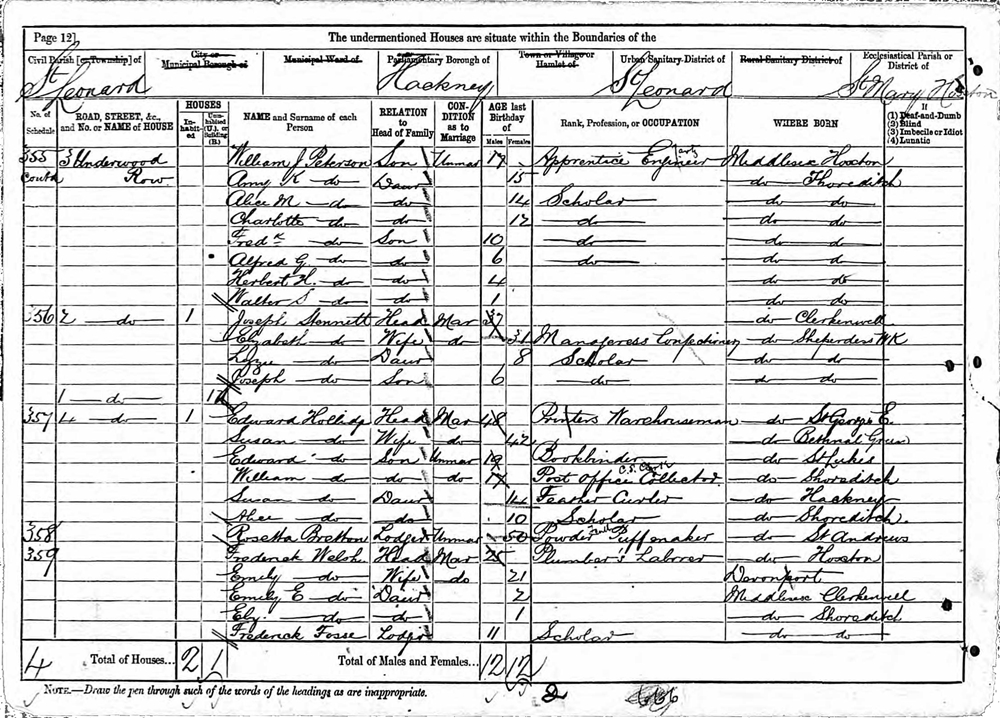 Page 12]
The undermentioned Houses are situate within the Boundaries of the
Civil Parish [or Township] of City or Municipal Borough of Municipal Ward of Parliamentary Borough of Town or Village or Hamlet of Urban Sanitary District of Rural Sanitary District of Ecclesiastical Parish or District of
St Leonard Hackney St Leonard St Mary Hoxton
No. of Schedule ROAD, STREET, &c., and No. or NAME of HOUSE HOUSES Inhabited Uninhabited (U.), or Building (B.) NAME and Surname of each Person RELATION to Head of Family CONDITION as to Marriage AGE last Birthday of Males Females Rank, Profession, or OCCUPATION WHERE BORN If (1) Deaf-and-Dumb (2) Blind (3) Imbecile or Idiot (4) Lunatic
355 3 Underwood William J. Peterson Son Unmar 17 Apprentice Engineer Middlesex Hoxton
Contd Row Amy K do Daur 15 do Shoreditch
Alice M do do 14 Scholar do do
Charlotte do do 12 do do do
Fredk do Son 10 do do do
Alfred G. do do 6 do do do
Herbert H. do do 4 do do
Walter S do do 1 do do
356 2 do 1 Joseph Stonnett Head Mar 37 do Clerkenwell
Elizabeth do Wife do 31 Manageress Confectionery do
Lizzie do Daur 8 Scholar do do
Joseph do Son 6 do do do
1 do
357 4 do 1 Edward Head Mar 48 Printers Warehouseman do St George E.
Susan do Wife do 42 do Bethnal Green
Edward do Son Unmar 19 Bookbinder do St Lukes
William do do do 17 Post Office Collector do Shoreditch
Susan do Daur 14 Feather Curler do Hackney
Alice do do 10 Scholar do Shoreditch.
358 Rosetta Bretton Lodger Unmar 50 Powder Puff maker do St Andrews
359 Frederick Welsh Head Mar 25 Plumber's Laborer do Hoxton
Emily do Wife do 21 Devonport
Emily E do Daur 2 Middlesex Clerkenwell
Eliz. do do 1 do Shoreditch
Frederick Fosse Lodger 11 Scholar do do
4 Total of Houses... 2 1 Total of Males and Females... 12 12
NOTE.—Draw the pen through such of the words of the headings as are inappropriate.